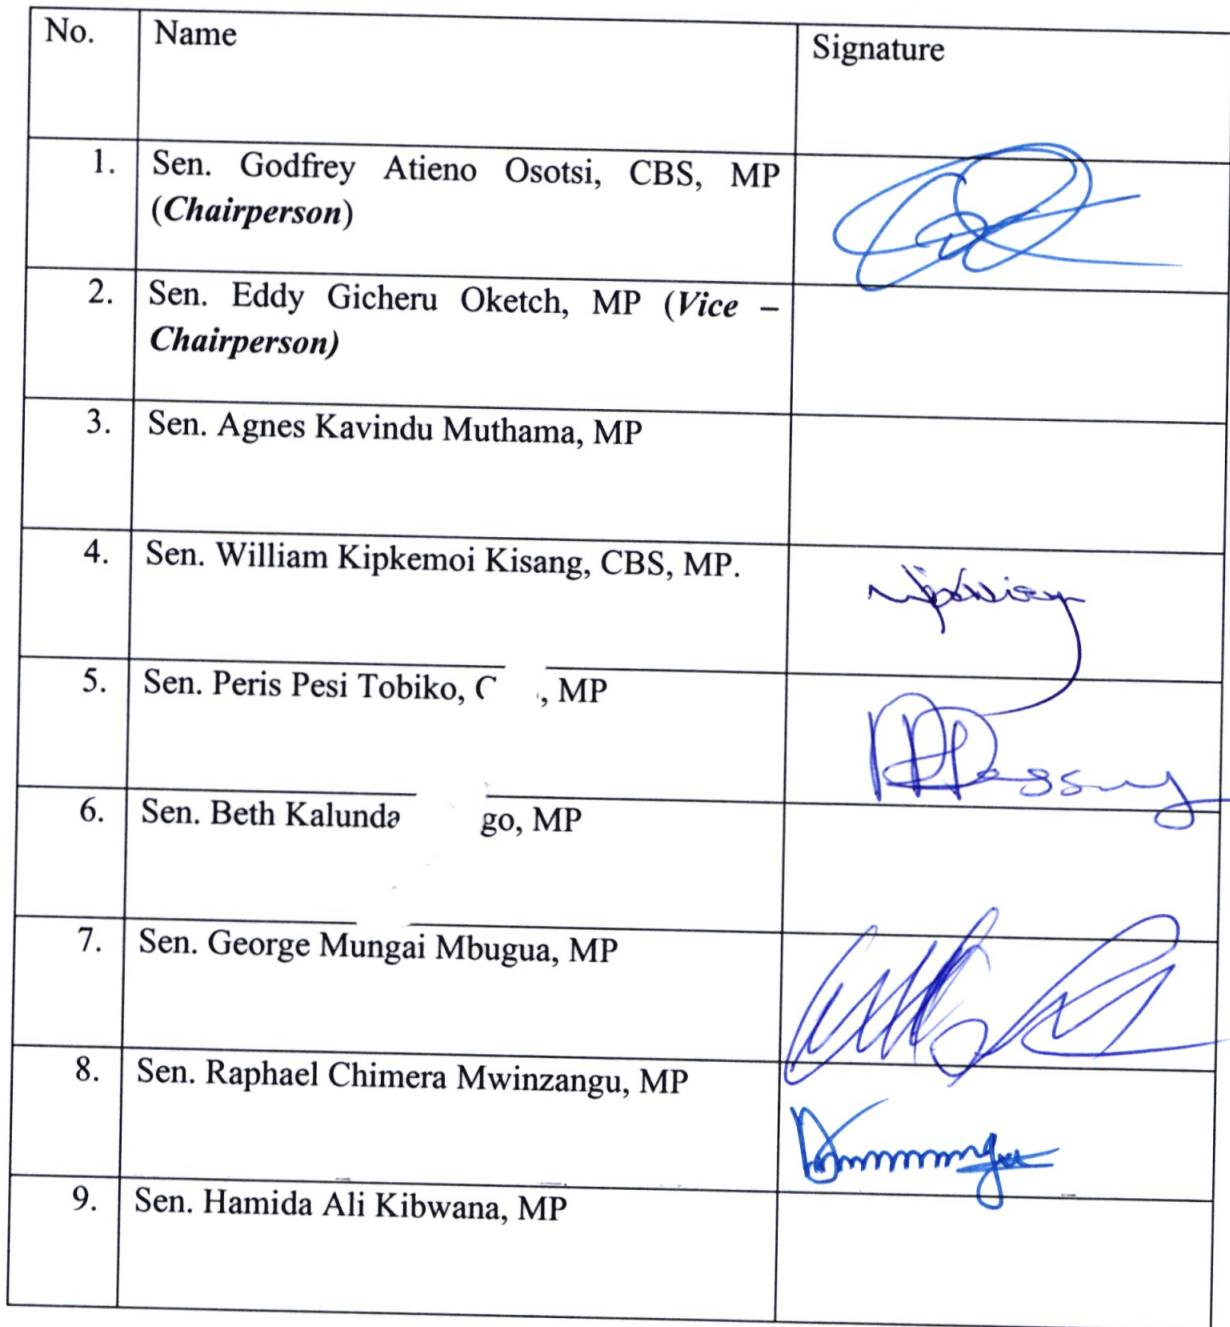 No. Name Signature
1. Sen. Godfrey Atieno Osotsi, CBS, MP
(Chairperson)
2. Sen. Eddy Gicheru Oketch, MP (Vice –
Chairperson)
3. Sen. Agnes Kavindu Muthama, MP
4. Sen. William Kipkemoi Kisang, CBS, MP.
5. Sen. Peris Pesi Tobiko, C , MP
6. Sen. Beth Kalunda go, MP
7. Sen. George Mungai Mbugua, MP
8. Sen. Raphael Chimera Mwinzangu, MP
9. Sen. Hamida Ali Kibwana, MP